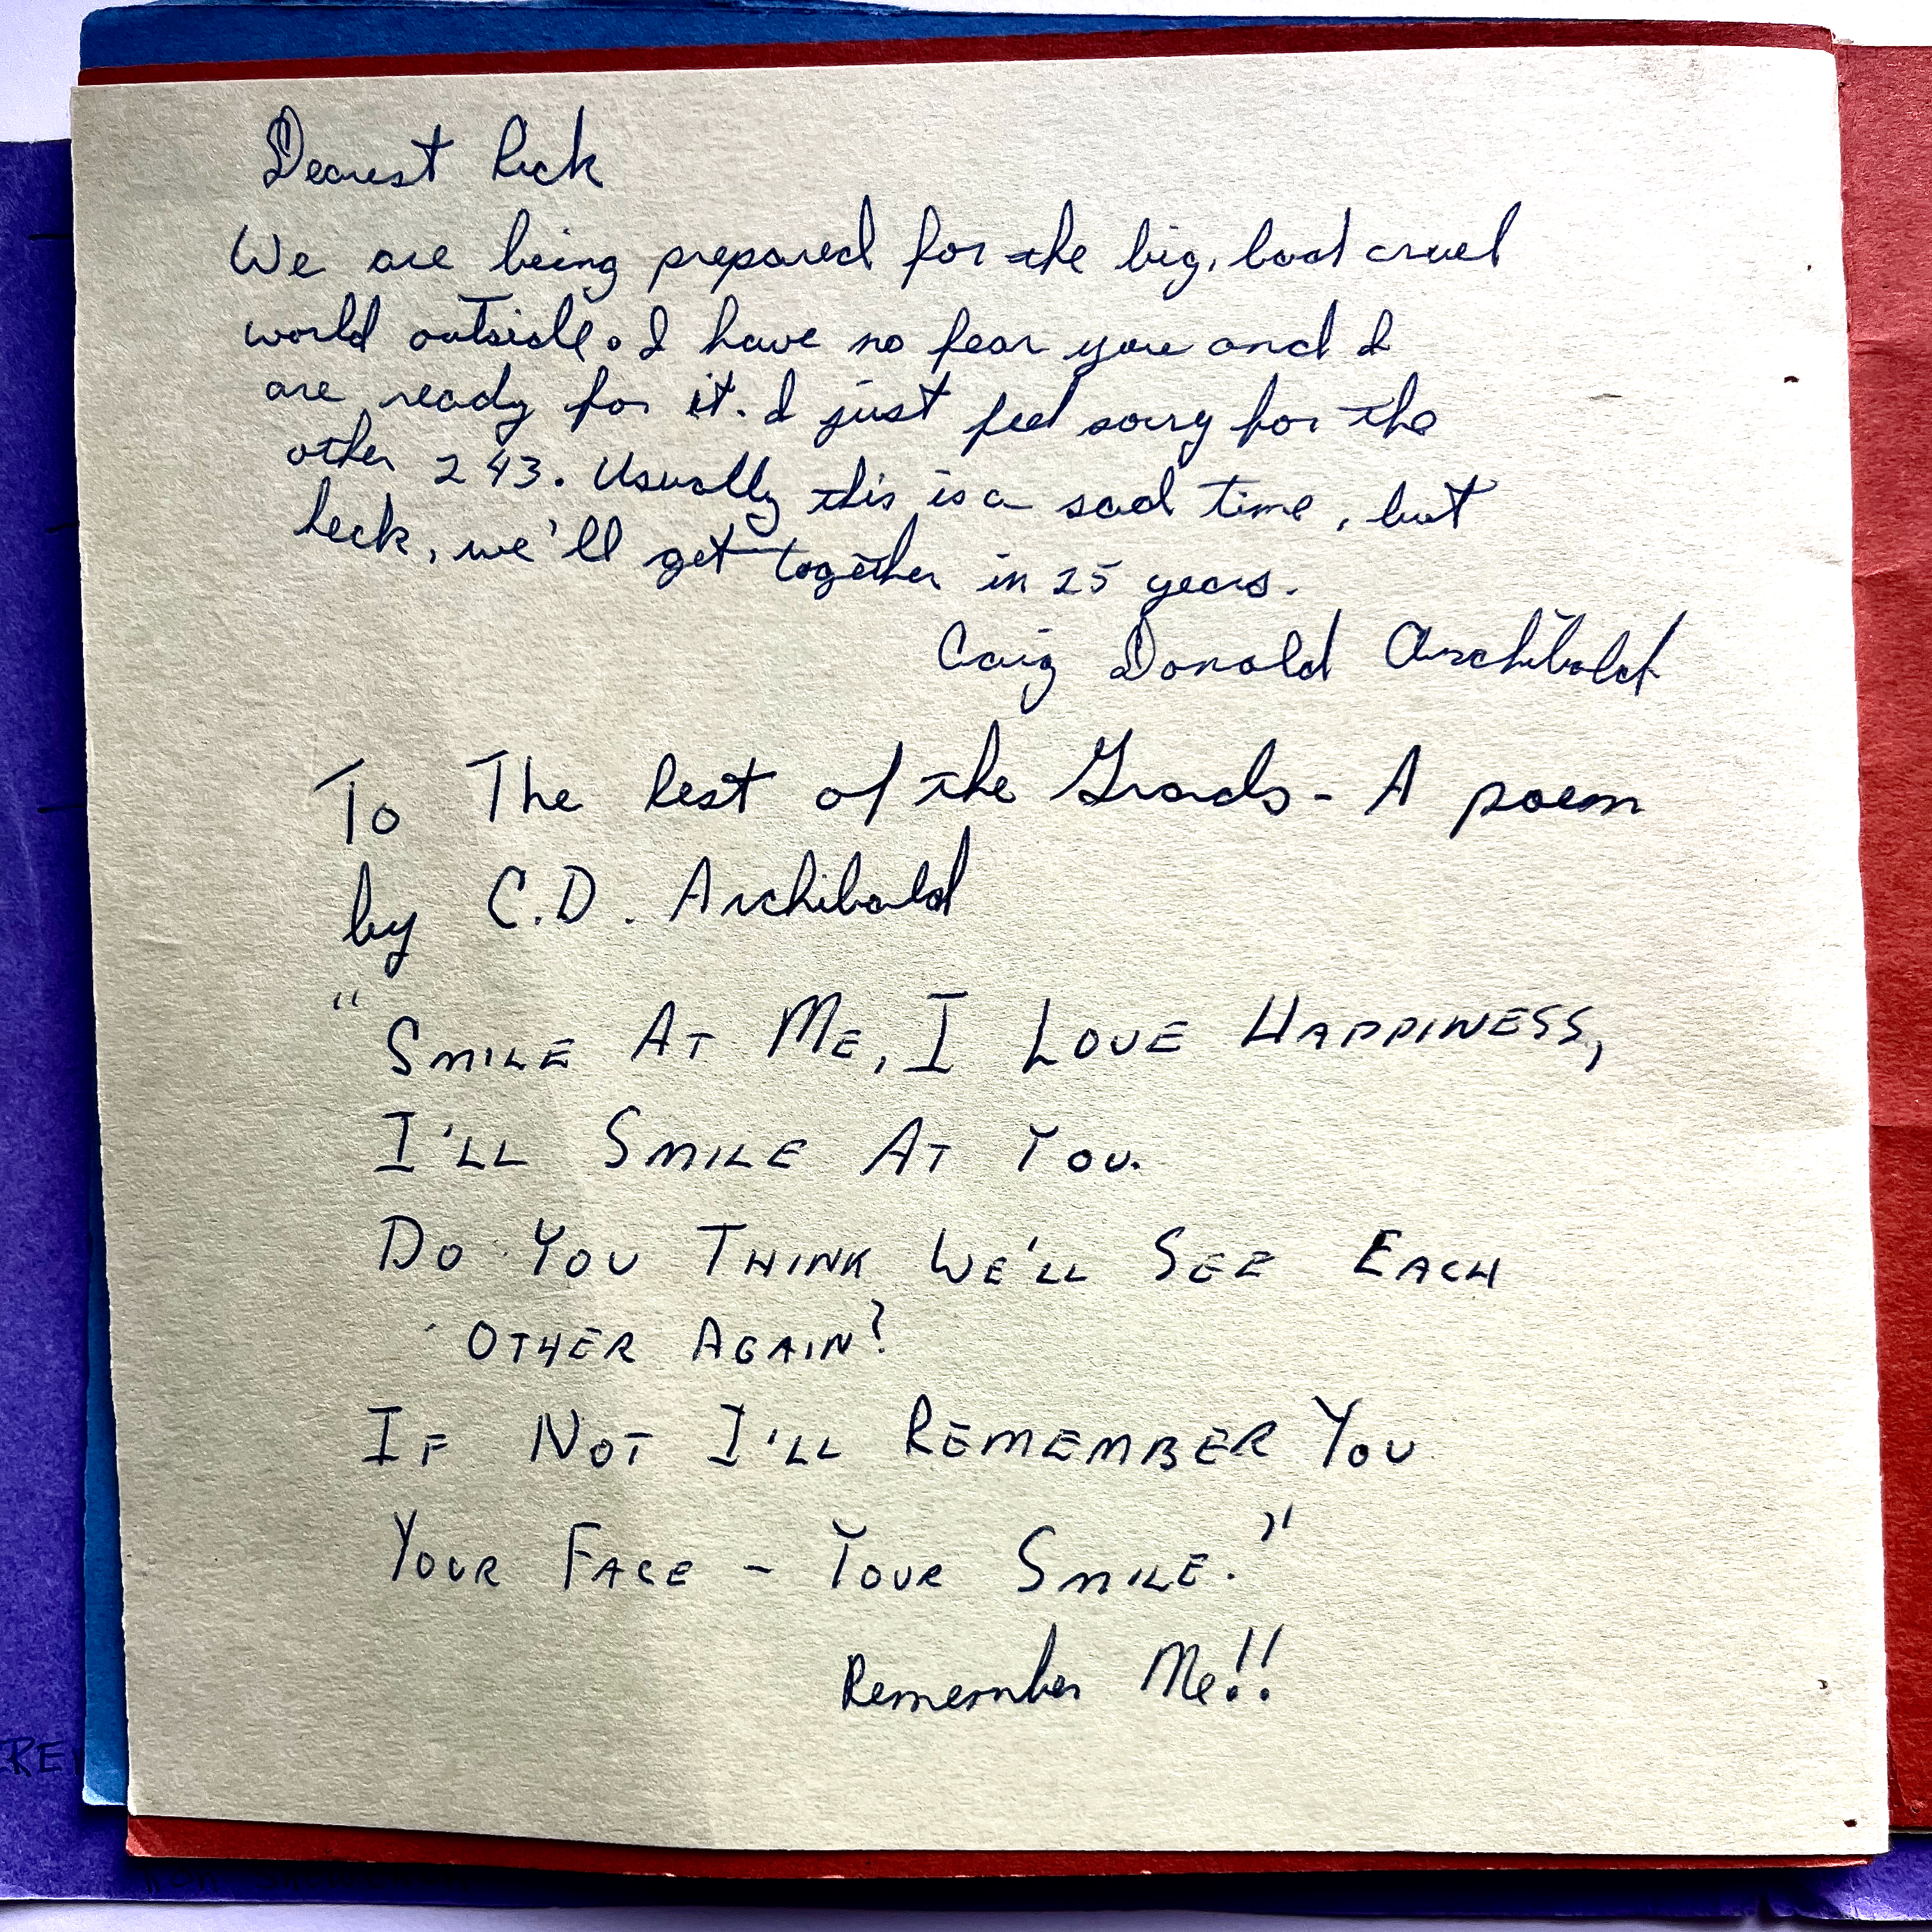 Dearest Rick
We are being prepared for the big, bad cruel
world outside. I have no fear you and I
are ready for it. I just feel sorry for the
other 243. Usually this is a sad time, but
heck, we'll get together in 25 years.
Craig Donald Archibald
To The Rest of the Grads - A poem
by C.D. Archibald
"Smile At Me, I Love Happiness,
I'll Smile At You.
Do You Think We'll See Each
Other Again?
If Not I'll Remember You
Your Face - Your Smile."
Remember Me!!